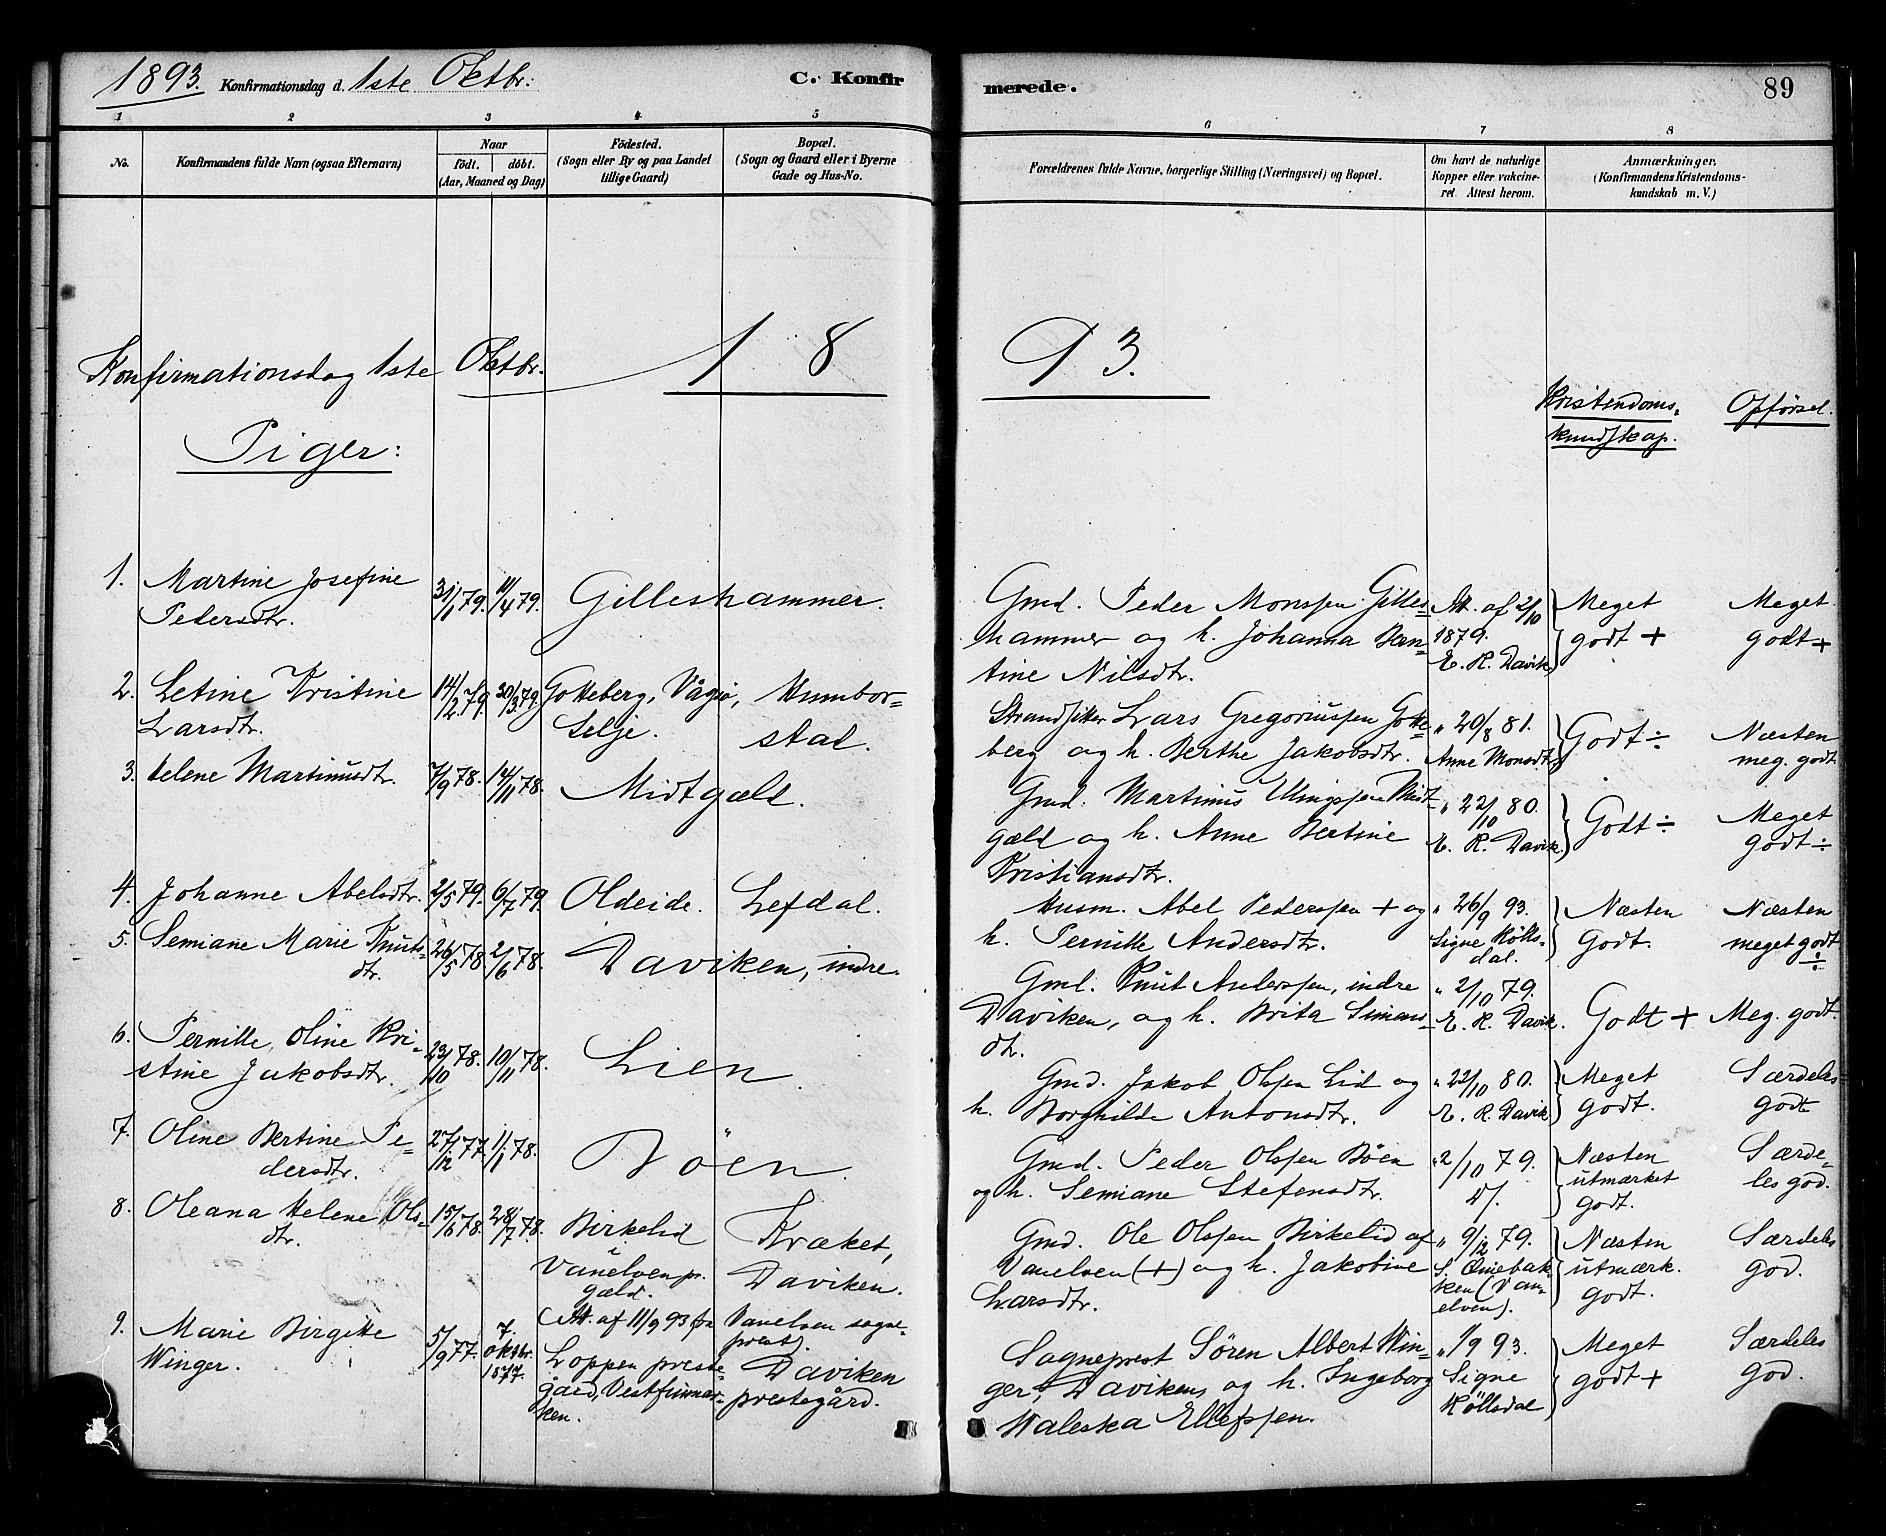 1893. Konfirmationsdag d. 1ste Oktbr. C. Konfir
merede. 89
1 2 3 4 5 6 7 8
No.
Konfirmandens fulde Navn (ogsaa Efternavn)
Naar
födt. döbt.
(Aar, Maaned og Dag)
Födested.
(Sogn eller By og paa Landet
tillige Gaard)
Bopæl.
(Sogn og Gaard eller i Byerne
Gade og Hus-No.
Forældrenes fulde Navne, borgerlige Stilling (Næringsvei) og Bopæl.
Om havt de naturlige
Kopper eller vakcine-
ret. Attest herom.
Anmærkninger.
(Konfirmandens Kristendoms-
kundskab m. V.)
Konfirmationsdag 1ste Oktbr. 18 93.
Piger:
Kristendoms-
kundskap.
Opförsel.
1. Martine Josefine
Pedersdtr.
31/1 79. 11/4 79.
Gilleshammer.
Gmd. Peder Monssen Gilles-
hammer og h. Johanna Bern-
tine Nilsdtr.
Att. af 2/10
1879.
E. R. Davik.
Meget
godt +
Meget
godt +
2. Letine Kristine
Larsdtr.
14/2 79. 30/3 79.
Gotteberg, Vågsö,
Selje.
Humbor-
stad.
Strandsitter Lars Gregoriussen Gotte-
berg og h. Berthe Jakobsdtr.
" 20/8 81.
Anne Monsdtr.
Godt ÷
Næsten
meg. godt
3. Helene Martinusdtr.
7/9 78. 14/11 78.
Midtgæld.
Gmd. Martinus Ellingssen Midt-
gæld og h. Anne Bertine
Kristiansdtr.
" 22/10 80.
E. R. Davik.
Godt ÷
Meget
godt ÷
4. Johanne Abelsdtr.
2/5 79. 6/7 79.
Oldeide. Lefdal.
Husm. Abel Pederssen + og
h. Pernille Andersdtr.
" 26/9 93.
Signe Kölls-
dal.
Næsten
Godt.
Næsten
meget godt
÷
5. Semiane Marie Knuts-
dtr.
26/5 78. 2/6 78.
Daviken, indre.
Gmd. Knut Anderssen, indre
Daviken, og h. Brita Simons-
dtr.
" 2/10 79.
E. R. Davik.
Godt + Meg. godt.
6. Pernille Oline Kri-
stine Jakobsdtr.
23/10 78. 10/11 78.
Lien.
Gmd. Jakob Olssen Lid og
h. Borghilde Antonsdtr.
" 22/10 80.
E. R. Davik.
Meget
godt.
Særdeles
godt
7. Oline Bertine Pe-
dersdtr.
27/12 77. 1/1 78.
Böen.
Gmd. Peder Olssen Böen
og h. Semiane Stefensdtr.
" 2/10 79.
Næsten
utmærket
godt.
Særde-
les god.
8. Oleana Helene Ols-
dtr.
15/6 78. 28/7 78.
Birkelid
i
Vanelven pr.
gæld.
Kræket,
Daviken.
Gmd. Ole Olssen Birkelid af
Vanelven (+) og h. Jakobine
Larsdtr.
" 9/12 79.
ken (Van-
elven).
Næsten
utmærk.
godt.
Særdeles
god.
9. Marie Birgitte
Winger.
5/9 77. 7.
oktbr.
1877.
(Att. af 11/9 93 fra Vanelven sogne-
prest).
Loppen preste-
gård, Vestfinmar-
ken.
Daviken
prestegård.
Sogneprest Sören Albert Win-
ger, Daviken, og h. Ingeborg
Waleska Ellefssen.
" 1/9 93.
Signe
Köllsdal
Meget
godt +
Særdeles
god.